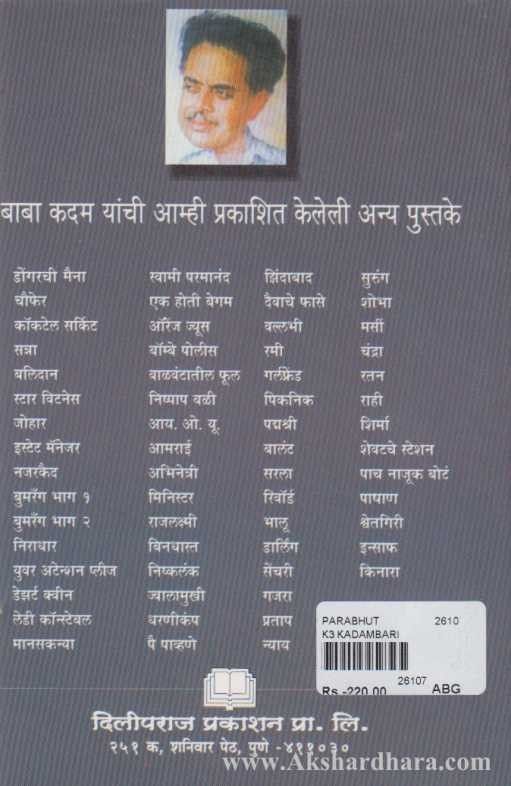 बाबा कदम यांची आम्ही प्रकाशित केलेली अन्य पुस्तके
डोंगरची मैना स्वामी परमानंद झिंदाबाद सुरुंग
चौफेर एक होती बेगम दैवाचे फासे शोभा
कॉकटेल सर्किट ऑरेंज ज्यूस वल्लभी मर्सी
सत्रा बॉम्बे पोलीस रमी चंद्रा
बलिदान वाळवंटातील फूल गर्लफ्रेंड रतन
स्टार विटनेस निष्पाप बळी पिकनिक राही
जोहार आय. ओ. यू. पद्मश्री शिर्मा
इस्टेट मॅनेजर आमराई बालंट शेवटचे स्टेशन
नजरकैद अभिनेत्री सरला पाच नाजूक बोटं
बुमरँग भाग १ मिनिस्टर रिवॉर्ड पाषाण
बुमरँग भाग २ राजलक्ष्मी भालू श्वेतगिरी
निराधार बिनधास्त डार्लिंग इन्साफ
युवर अटेन्शन प्लीज निष्कलंक सेंचरी किनारा
डेझर्ट क्वीन ज्वालामुखी गजरा
लेडी कॉन्स्टेबल धरणीकंप प्रताप
मानसकन्या पै पाव्हणे न्याय
PARABHUT 2610
K3 KADAMBARI
26107
Rs.-220.00 ABG
दिलीपराज प्रकाशन प्रा. लि.
२५१ क, शनिवार पेठ, पुणे -४११०३०
www.Akshardhara.com